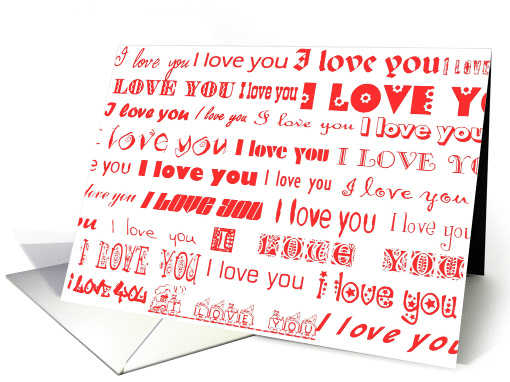 I love you I love you I love you I LOVE
LOVE YOU I love you I LOVE YO
I love you I love you I love you I love you
I love you I love you I LOVE YO
e you I love you I love you I love you
love you I LOVE YOU I love you I love you
ou I love you I LOVE YOU
I LOVE YOU I love you I love you
I LOVE YOU I LOVE YOU I love you